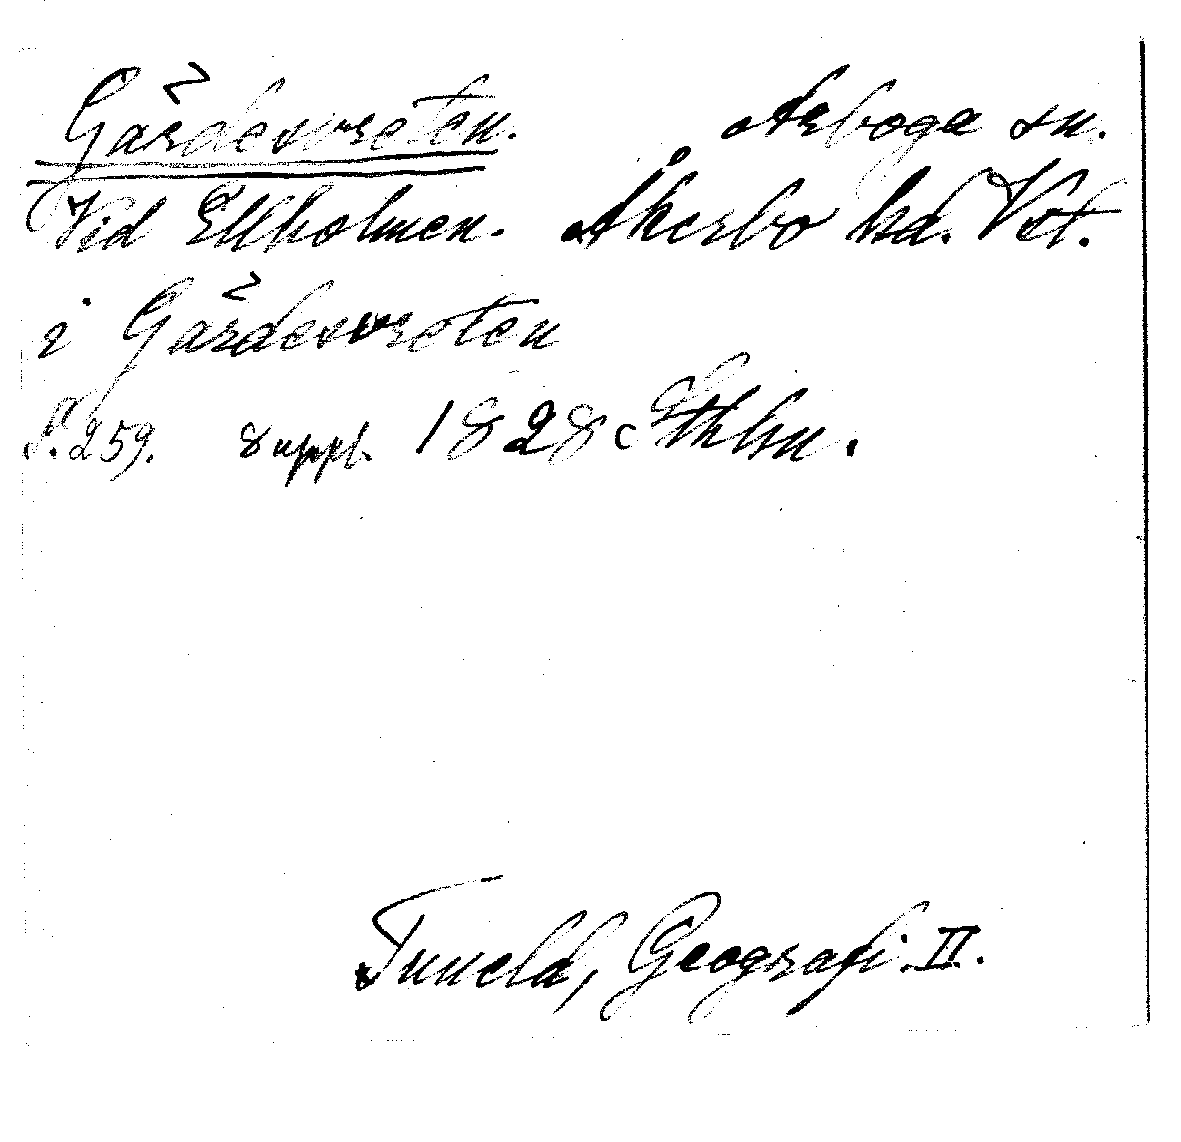 Gärdesvreten. Arboga sn.
Vid Ellholmen. Åkerbo hd. Vst.
i Gärdesvreten
S. 259. uppl. 1828 Sthlm.
Tuneld, Geografi. II.